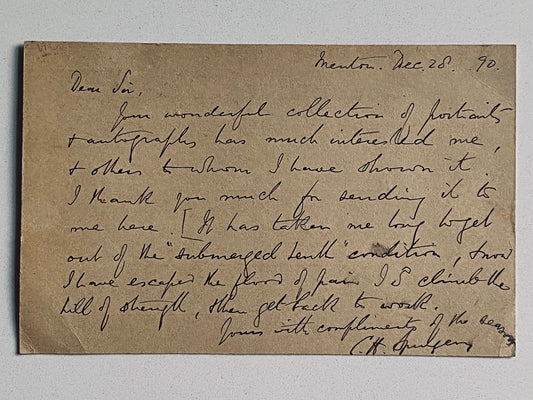 Menton. Dec. 28. 90.
Dear Sir,
Your wonderful collection of portraits
& autographs has much interested me,
& others to whom I have shown it.
I thank you much for sending it to
me here. [It has taken me long to get
out of the "submerged tenth" condition, & now
I have escaped the flood of pain I climb the
hill of strength, & then get back to work.
Yours with compliments of the season
C. H. Spurgeon